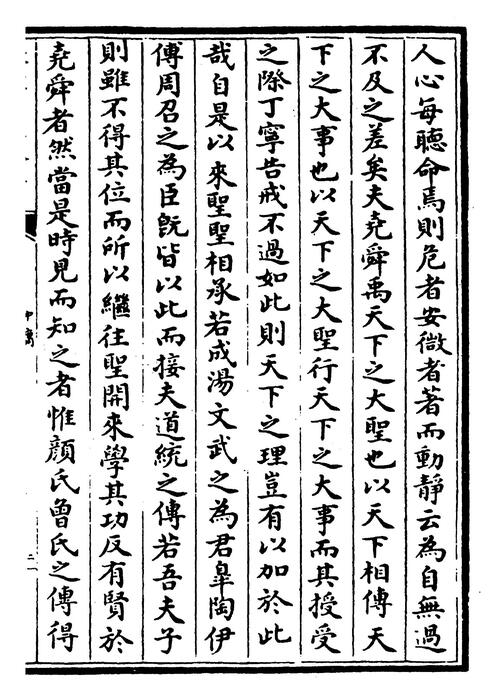 人心每聽命焉則危者安微者著而動靜云為自無過
不及之差矣夫堯舜禹天下之大聖也以天下相傳天
下之大事也以天下之大聖行天下之大事而其授受
之際丁寧告戒不過如此則天下之理豈有以加於此
哉自是以來聖聖相承若成湯文武之為君臯陶伊
傅周召之為臣旣皆以此而接夫道統之傳若吾夫子
則雖不得其位而所以繼往聖開來學其功反有賢於
堯舜者然當是時見而知之者惟顏氏曾氏之傳得
中庸
二